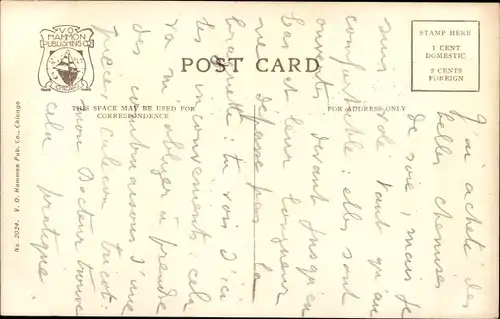 V.O. HAMMON PUBLISHING CO.
CHICAGO
POST CARD
THIS SPACE MAY BE USED FOR CORRESPONDENCE
FOR ADDRESS ONLY
STAMP HERE
1 CENT
DOMESTIC
2 CENTS
FOREIGN
No. 2024. V. O. Hammon Pub. Co., Chicago
J'ai acheté des
belles chemises
de soie, mais je
suis volé tant qu'au
confortable : elles sont
ouvertes devant jusqu'en
bas et leur longueur
ne dépasse pas la
braguette : tu vois d'ici
les inconvénients : cela
va m'obliger à prendre
des combinaisons d'une
pièce, caleçon tricot.
mon Docteur trouve
cela pratique